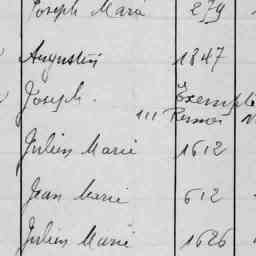 Joseph Marie 279
Augustin 1847
Joseph. Exempté
111 Rennes
Julien Marie 1612
Jean Marie 612
Julien Marie 1626